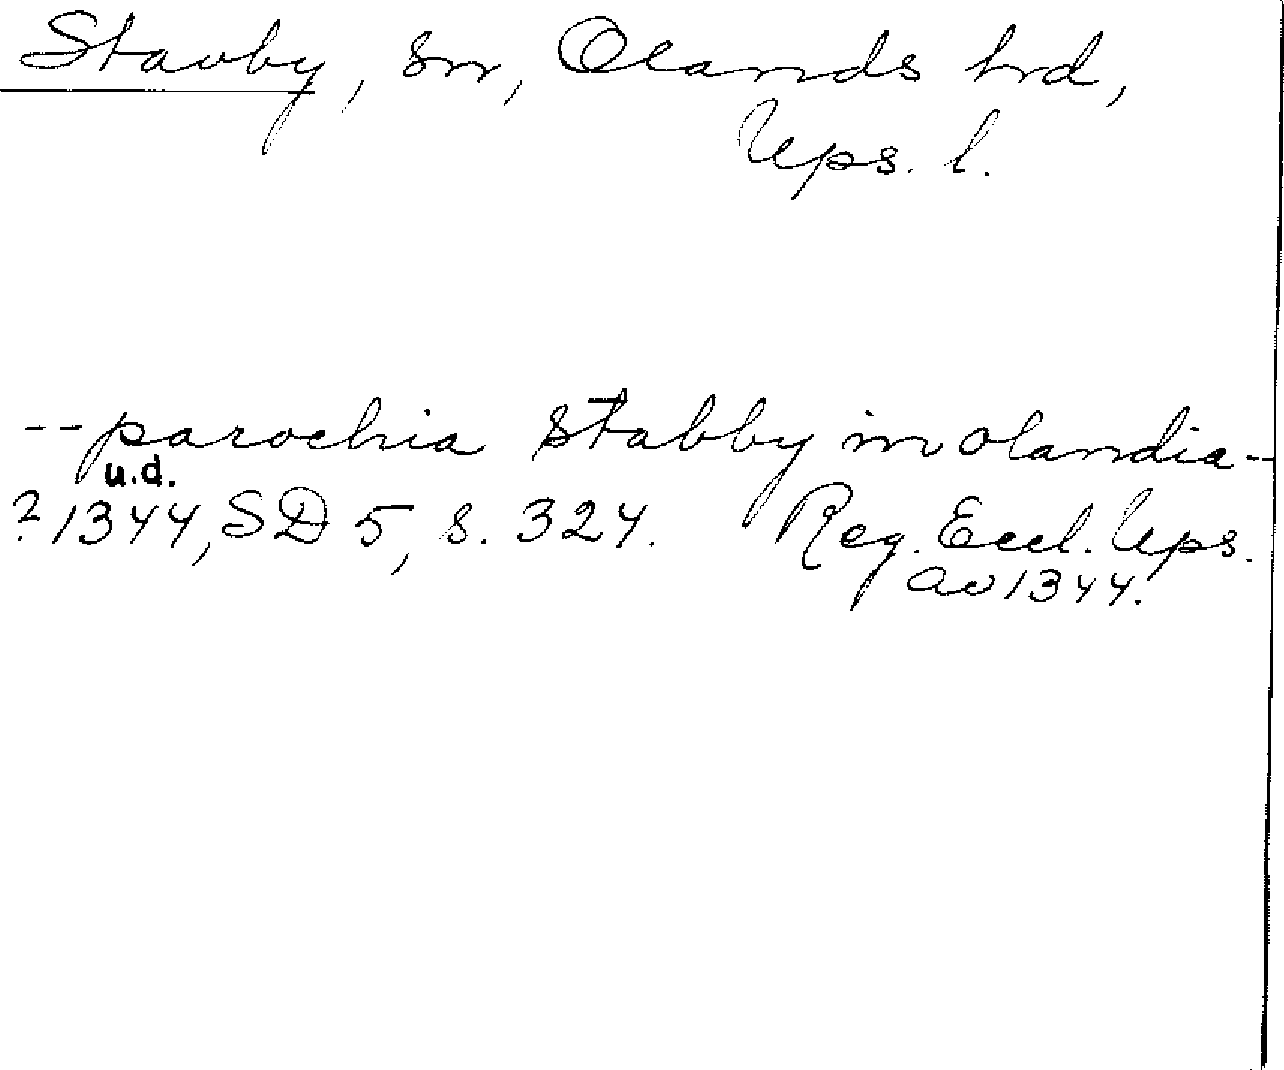 Stavby, sn, Olands hrd,
Ups. l.
-- parochia Stabby in olandia --
u.d.
? 1344, SD 5, s. 324. Reg. Eccl. Ups.
av 1344.